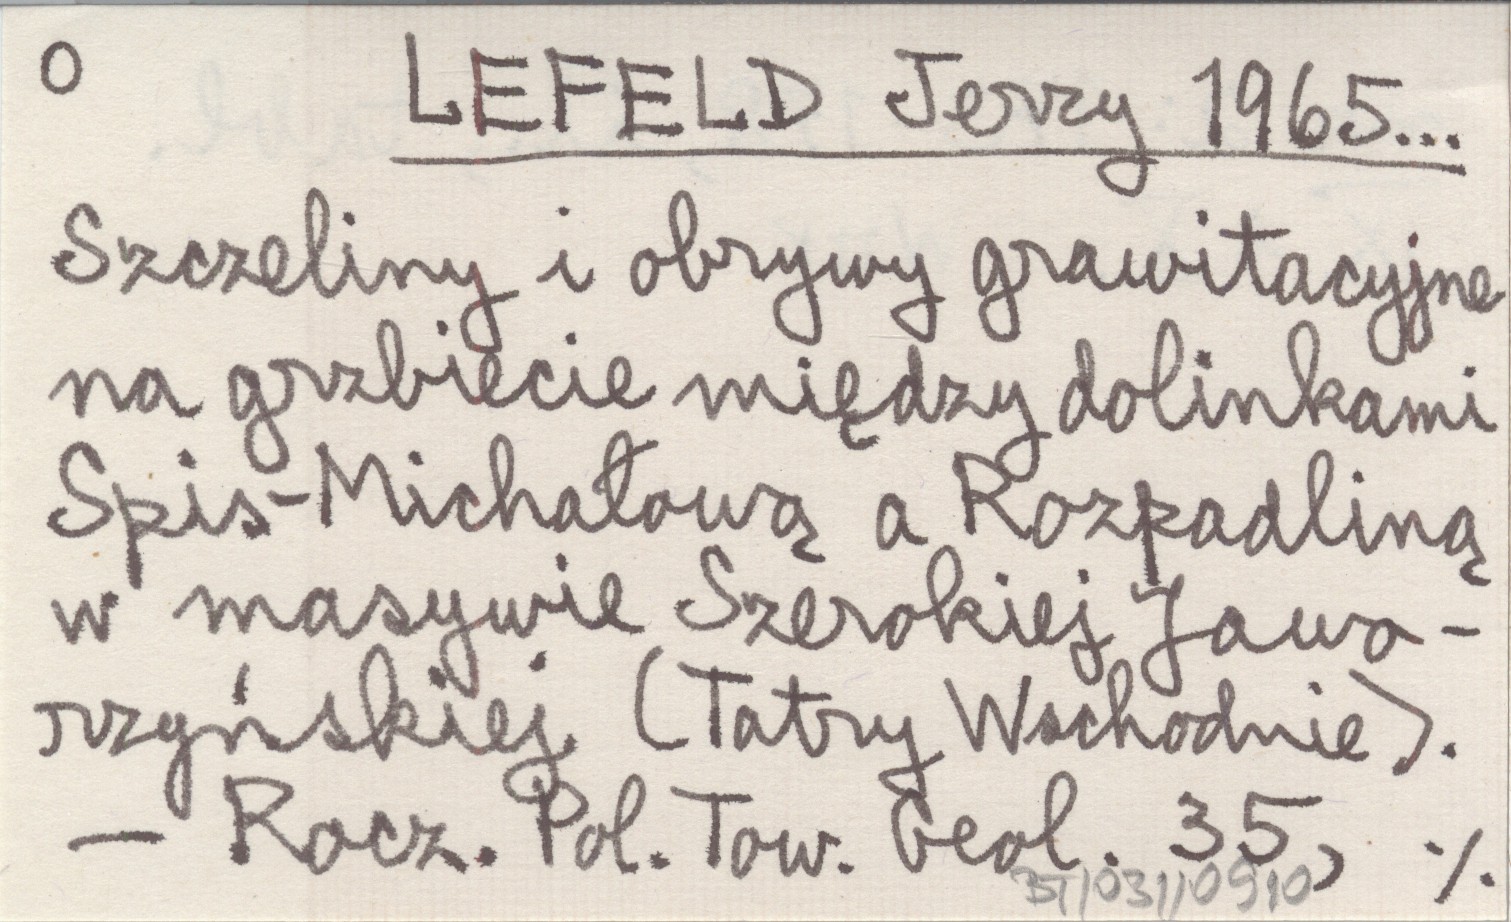 O LEFELD Jerzy 1965...
Szczeliny i obrywy grawitacyjne
na grzbiecie między dolinkami
Spis-Michałową a Rozpadliną
w masywie Szerokiej Jawo-
rzyńskiej (Tatry Wschodnie).
— Rocz. Pol. Tow. Geol. 35, ./.
BT/031/0910